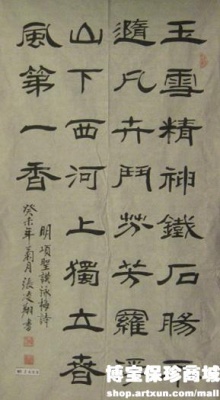 玉雪精神鐵石腸不
隨凡卉鬥芬芳羅浮
山下西河上獨立春
風第一香
明項聖謨詠梅詩
癸未年菊月張翔書
博宝保珍商城
shop.artxun.com/mall